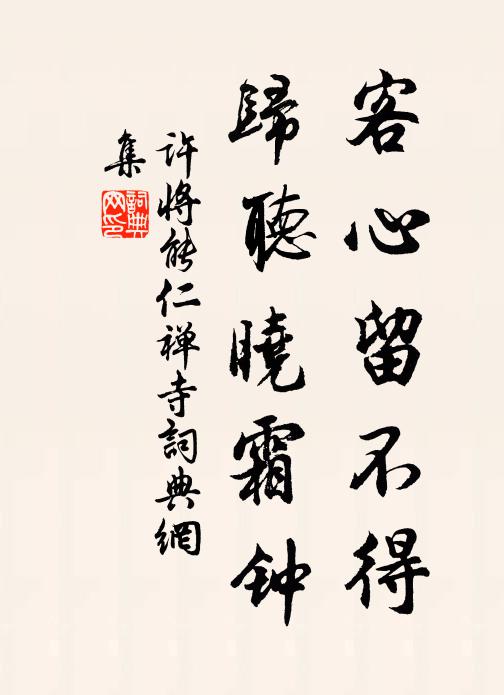 客心留不得
歸聽曉霜钟
许将能仁禅寺詞典網
集
詞典網印